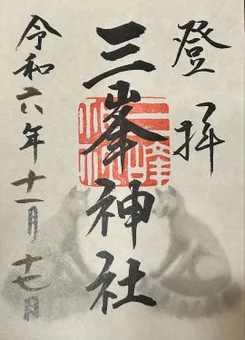 登拝
三峯神社
令和六年十一月十七日
三峰